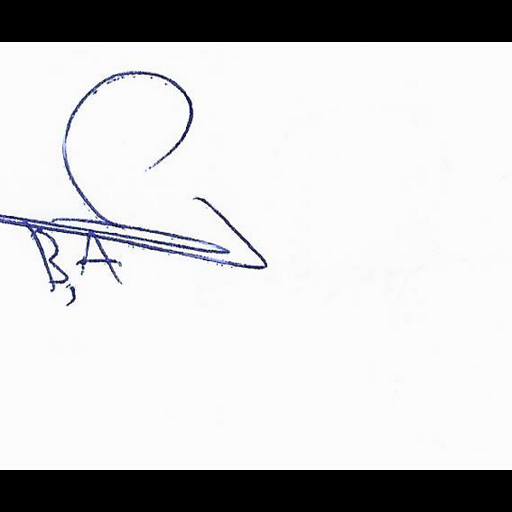 B, A